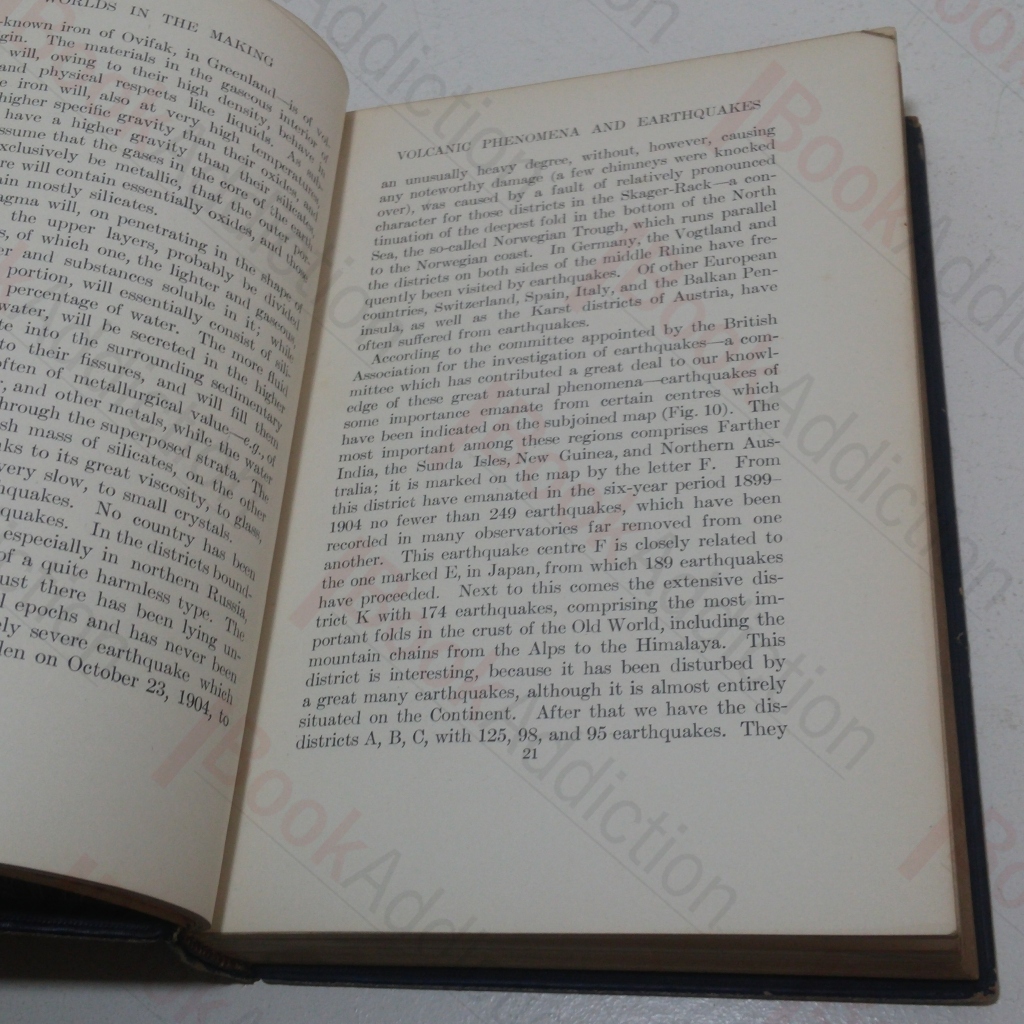 WORLDS IN THE MAKING
-known iron of Ovifak, in Greenland—is of vol-
gin. The materials in the gaseous interior of
will, owing to their high density, behave in
and physical respects like liquids. As sub-
e iron will, also at very high temperatures,
higher specific gravity than their oxides, and
have a higher gravity than their silicates,
ssume that the gases in the core of the earth
exclusively be metallic, that the outer por-
re will contain essentially oxides, and those
ain mostly silicates.
agma will, on penetrating in the shape of
the upper layers, probably be divided
s, of which one, the lighter and gaseous,
er and substances soluble in it; while
portion, will essentially consist of sili-
percentage of water. The more fluid
water, will be secreted in the higher
te into the surrounding sedimentary
to their fissures, and will fill them
often of metallurgical value—e.g., of
, and other metals, while the water
through the superposed strata. The
sh mass of silicates, on the other
ks to its great viscosity, to glass,
very slow, to small crystals.
hquakes. No country has been
quakes. In the districts bound-
especially in northern Russia,
of a quite harmless type. The
ust there has been lying un-
l epochs and has never been
ely severe earthquake which
den on October 23, 1904, to
VOLCANIC PHENOMENA AND EARTHQUAKES
an unusually heavy degree, without, however, causing
any noteworthy damage (a few chimneys were knocked
over), was caused by a fault of relatively pronounced
character for those districts in the Skager-Rack—a con-
tinuation of the deepest fold in the bottom of the North
Sea, the so-called Norwegian Trough, which runs parallel
to the Norwegian coast. In Germany, the Vogtland and
the districts on both sides of the middle Rhine have fre-
quently been visited by earthquakes. Of other European
countries, Switzerland, Spain, Italy, and the Balkan Pen-
insula, as well as the Karst districts of Austria, have
often suffered from earthquakes.
According to the committee appointed by the British
Association for the investigation of earthquakes—a com-
mittee which has contributed a great deal to our knowl-
edge of these great natural phenomena—earthquakes of
some importance emanate from certain centres which
have been indicated on the subjoined map (Fig. 10). The
most important among these regions comprises Farther
India, the Sunda Isles, New Guinea, and Northern Aus-
tralia; it is marked on the map by the letter F. From
this district have emanated in the six-year period 1899–
1904 no fewer than 249 earthquakes, which have been
recorded in many observatories far removed from one
another. This earthquake centre F is closely related to
the one marked E, in Japan, from which 189 earthquakes
have proceeded. Next to this comes the extensive dis-
trict K with 174 earthquakes, comprising the most im-
portant folds in the crust of the Old World, including the
mountain chains from the Alps to the Himalaya. This
district is interesting, because it has been disturbed by
a great many earthquakes, although it is almost entirely
situated on the Continent. After that we have the dis-
districts A, B, C, with 125, 98, and 95 earthquakes. They
21
BookAddiction